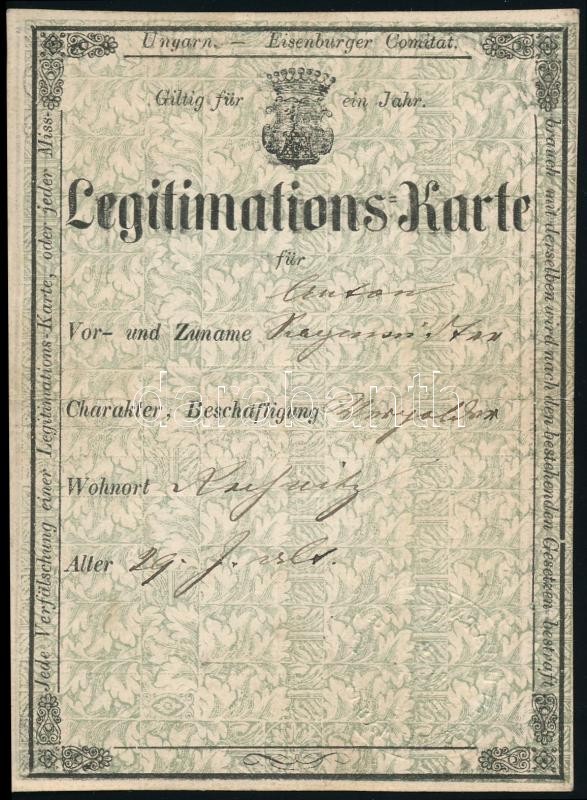 Ungarn. — Eisenburger Comitat.
Giltig für ein Jahr.
Legitimations=Karte
für
Anton
Vor- und Zuname
Charakter, Beschäftigung Vergolder
Wohnort Rechnitz
Alter 29. J. alt.
Jede Verfälschung einer Legitimations-Karte, oder jeder Miss-
brauch mit derselben wird nach den bestehenden Gesetzen bestraft.
darabanth